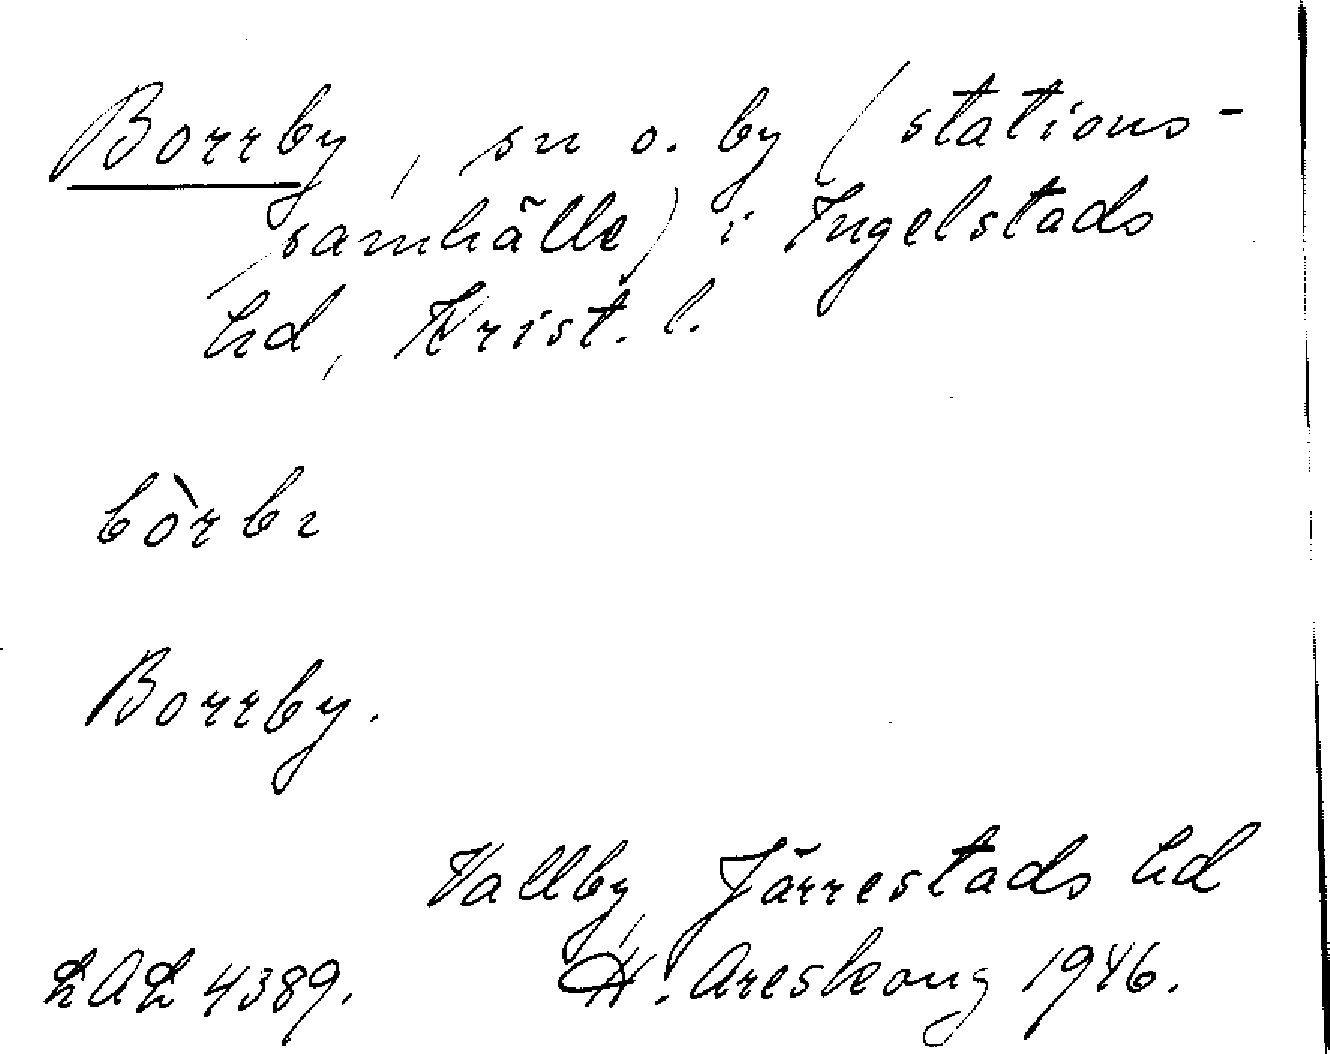 Borrby, sn o. by (stations-
samhälle) i Ingelstads
hd, Krist. l.
bòrbı
Borrby.
Vallby, Järrestads hd
LAL 4389. H. Areskoug 1946.